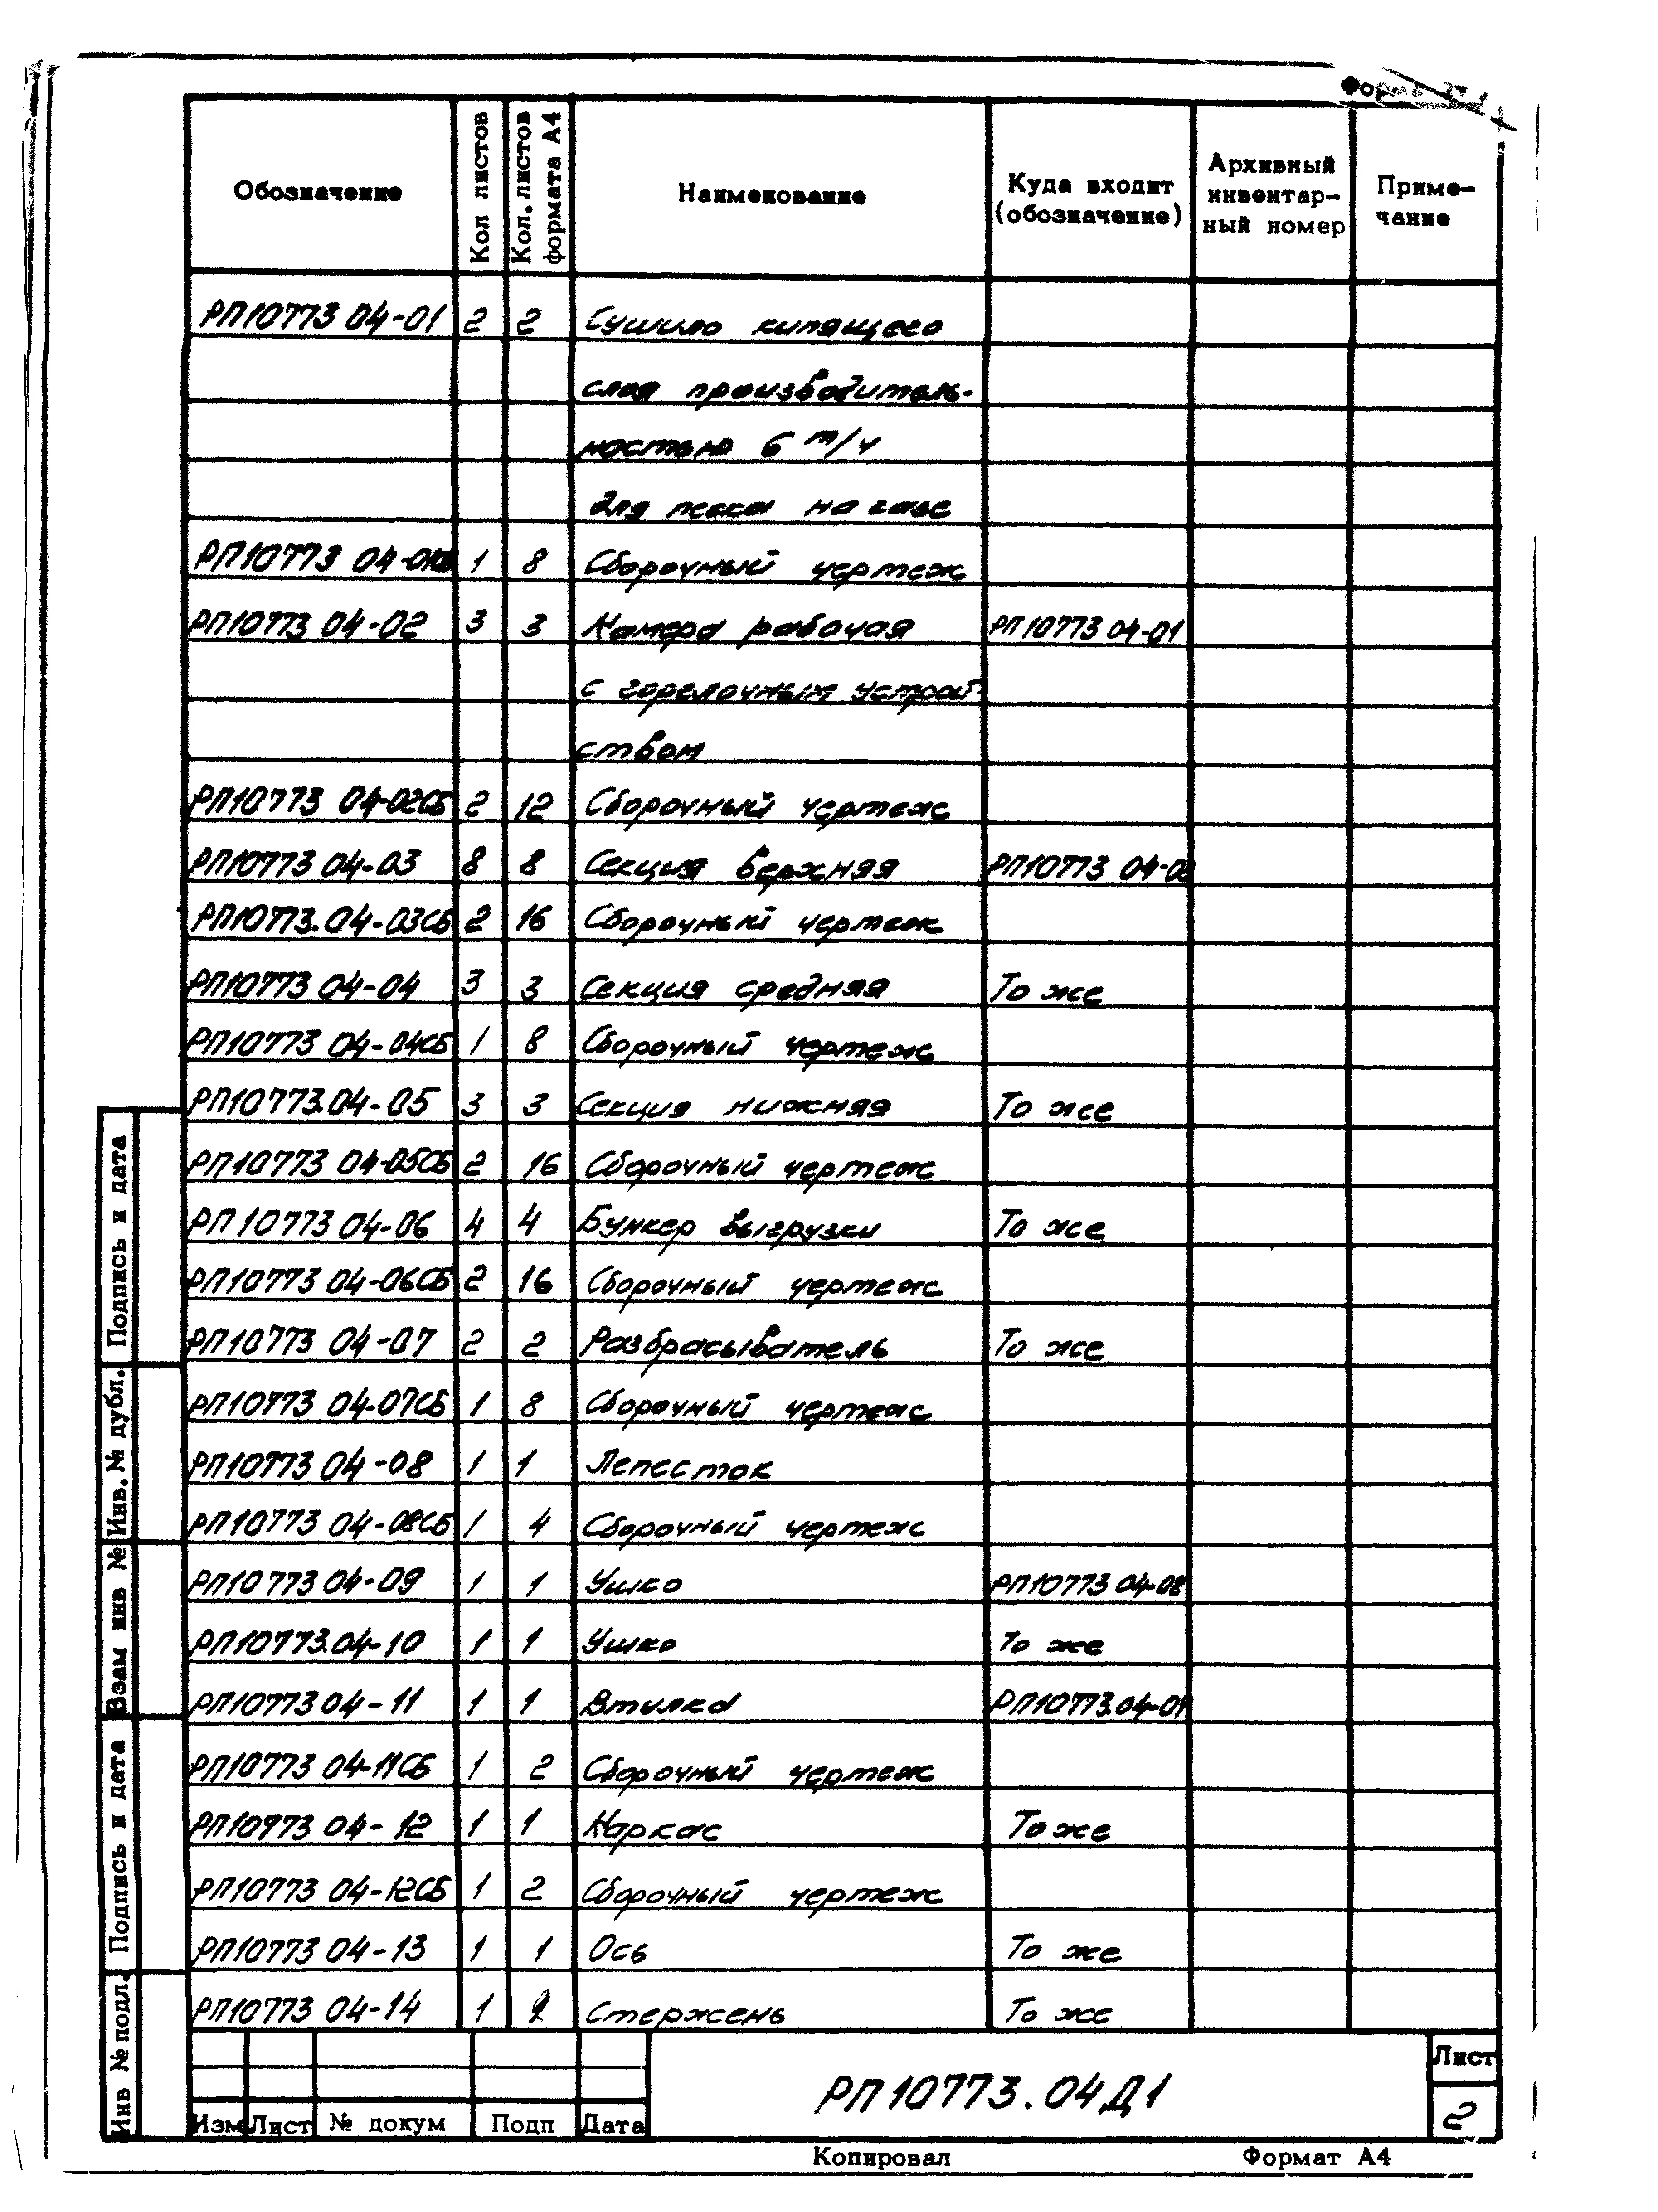 Форма
Обозначение Кол листов Кол.листов формата А4 Наименование Куда входит (обозначение) Архивный инвентарный номер Примечание
РП10773 04-01 2 2 Сушило кипящего
слоя производитель-
ностью 6 т/ч
для песка на газе
РП10773 04-01СБ 1 8 Сборочный чертеж
РП10773 04-02 3 3 Камера рабочая РП10773 04-01
с горелочным устрой-
ством
РП10773 04-02СБ 2 12 Сборочный чертеж
РП10773 04-03 8 8 Секция верхняя РП10773 04-02
РП10773.04-03СБ 2 16 Сборочный чертеж
РП10773 04-04 3 3 Секция средняя То же
РП10773 04-04СБ 1 8 Сборочный чертеж
РП10773.04-05 3 3 Секция нижняя То же
РП10773 04-05СБ 2 16 Сборочный чертеж
РП10773 04-06 4 4 Бункер выгрузки То же
РП10773 04-06СБ 2 16 Сборочный чертеж
РП10773 04-07 2 2 Разбрасыватель То же
РП10773 04-07СБ 1 8 Сборочный чертеж
РП10773 04-08 1 1 Лепесток
РП10773 04-08СБ 1 4 Сборочный чертеж
РП10773 04-09 1 1 Ушко РП10773 04-08
РП10773.04-10 1 1 Ушко То же
РП10773 04-11 1 1 Втулка РП10773.04-07
РП10773 04-11СБ 1 2 Сборочный чертеж
РП10773 04-12 1 1 Каркас То же
РП10773 04-12СБ 1 2 Сборочный чертеж
РП10773 04-13 1 1 Ось То же
РП10773 04-14 1 Стержень То же
Подпись и дата
Инв. № дубл.
Взам инв №
Подпись и дата
Инв № подл.
Изм Лист № докум Подп Дата
РП10773.04Д1
Лист
2
Копировал Формат А4